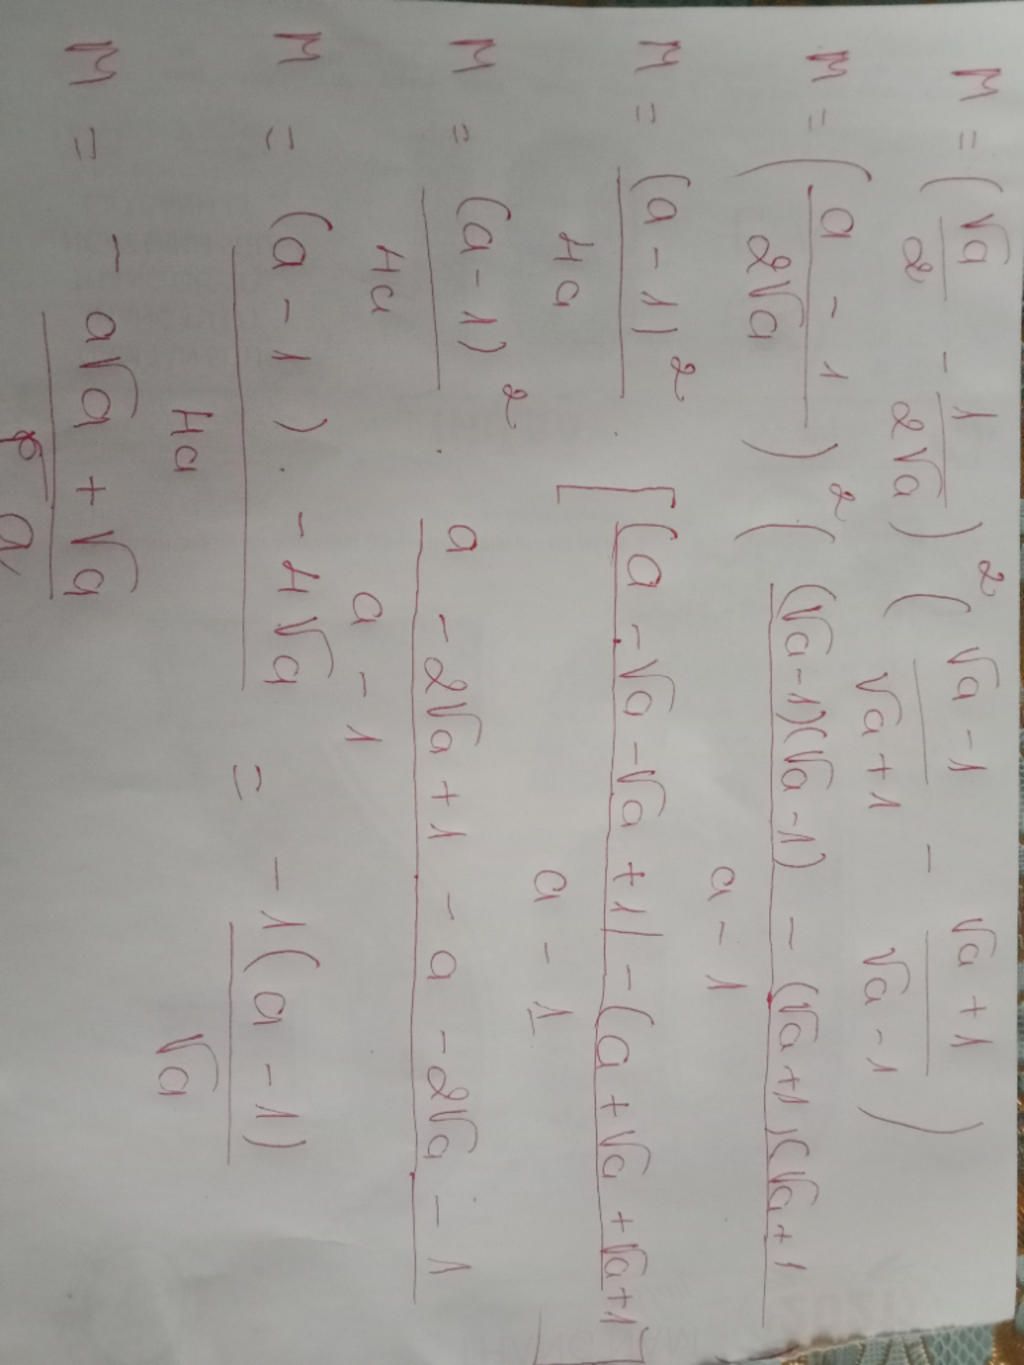 M = (√a/2 - 1/2√a)² (√a - 1/√a + 1 - √a + 1/√a - 1)
M = (a - 1/2√a)² ((√a - 1)(√a - 1) - (√a + 1)(√a + 1/a - 1
M = (a - 1)²/4a · [(a - √a - √a + 1) - (a + √a + √a + 1/a - 1]
M = (a - 1)²/4a · a - 2√a + 1 - a - 2√a - 1/a - 1
M = (a - 1) · - 4√a/4a = - 1(a - 1)/√a
M = - a√a + √a/a